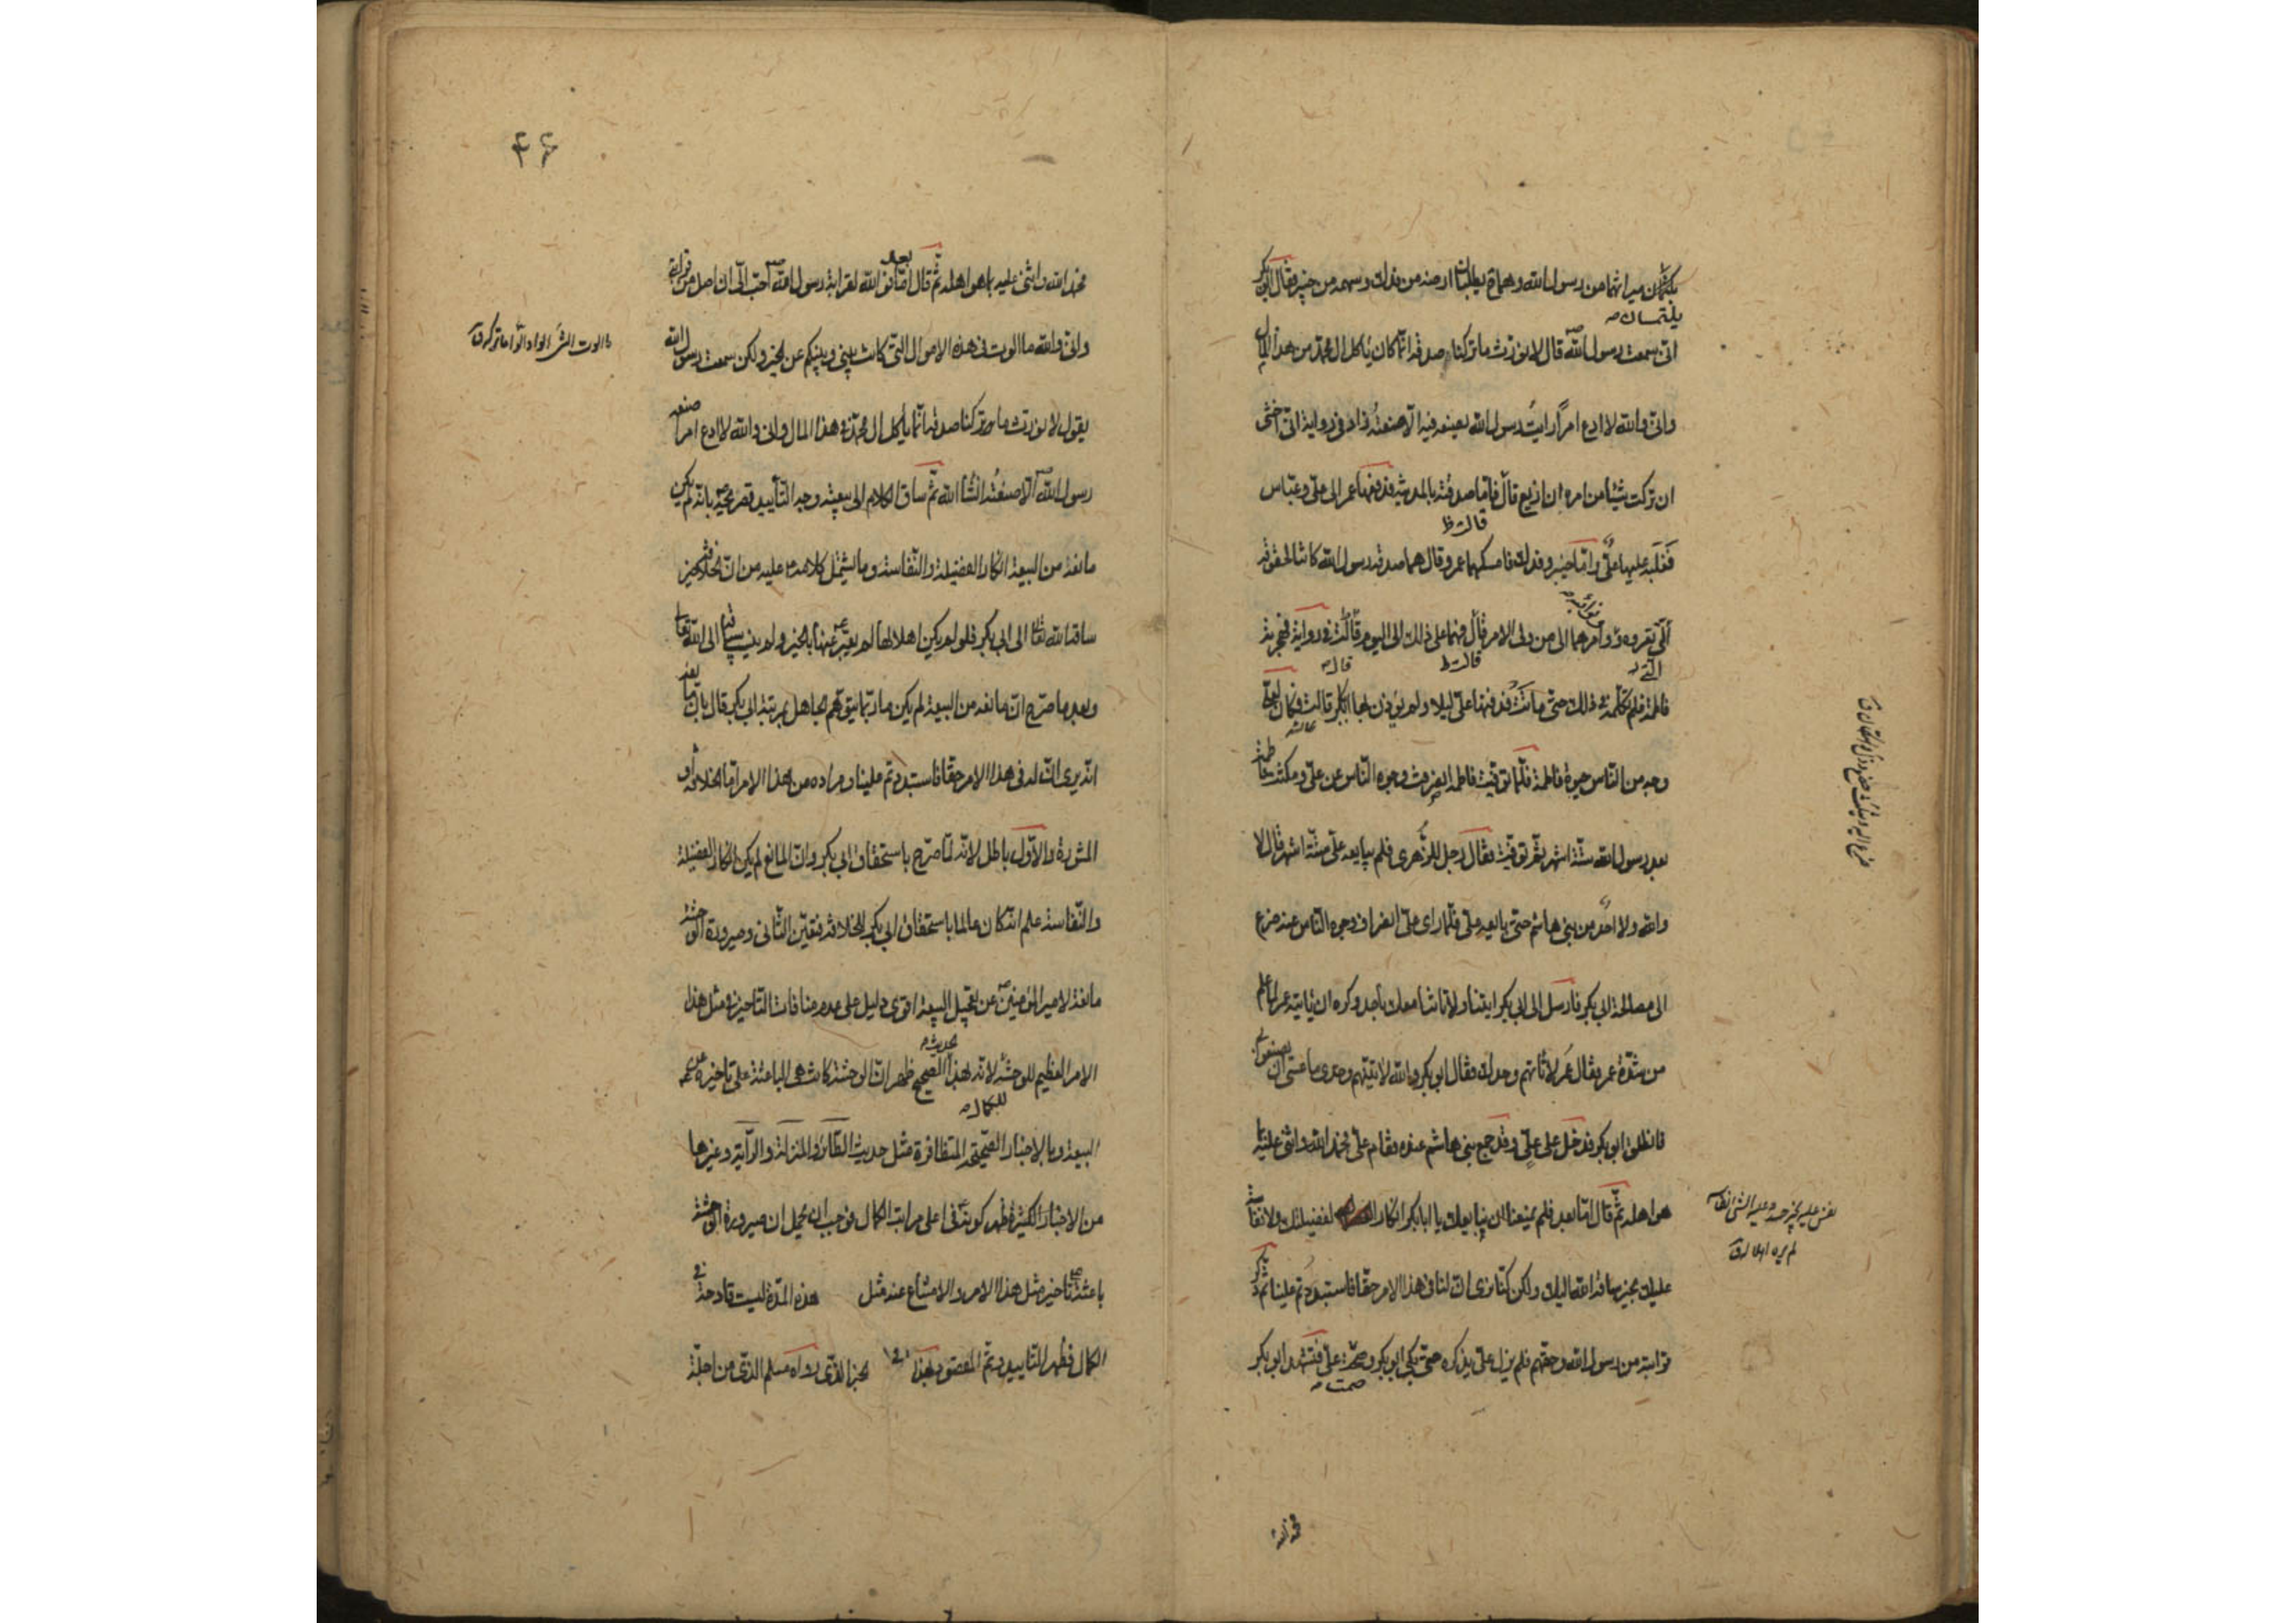 ميراثهما من رسول الله وهما يطلبان ارضه من فدك وسهمه من خيبر فقال ابو بكر
يلتمسان
انى سمعت رسول الله قال لا نورث ما تركنا صدقة انما كان يأكل ال محمد من هذا المال
وانى والله لا ادع امرًا رايتُ رسول الله يصنعه فيه الّا صنعتُه زاد فى رواية انى اخشى
ان تركت شيئا من امره ان ازيغ قال فامّا صدقته بالمدينة فدفعها عمر الى علىّ وعبّاس
قالت ظ
فغلبه عليها علىّ وامّا خيبر وفدك فامسكهما عمر وقال هما صدقة رسول الله كانتا لحقوقه
نوائبه
الّتى تعروه وامرهما الى من ولى الامر قال فهما على ذلك الى اليوم قالت فى رواية فهجرته
قالت ظ
قال
فاطمة فلم تكلّمه فى ذلك حتى ماتت فدفنها علىّ ليلا ولم يؤذن بها ابا بكر قالت فكان لعلىّ
عائشه
وجه من الناس حيوة فاطمة فلمّا توفيت فاطمة انصرفت وجوه الناس عن علىّ ومكثت فاطمة
بعد رسول الله ستة اشهر ثم توفيت فقال رجل للزّهرى فلم يبايعه علىّ ستّة اشهر قال لا
والله ولا احدٌ من بنى هاشم حتى بايعه علىّ فلمّا راى علىّ انصراف وجوه الناس عنه ضرع
الى مصالحة ابى بكر فارسل الى ابى بكر ايتنا ولا تاتنا معك باحد وكره ان ياتيه عمر لما علم
من شدّة عمر فقال عمر لا تاتهم وحدك فقال ابو بكر والله لاتينّهم وحدى ما عسى ان يصنعوا بى
فانطلق ابو بكر فدخل على علىّ وقد جمع بنى هاشم عنده فقام علىّ فحمد الله واثنى عليه بما
هو اهله ثم قال امّا بعد فلم يمنعنا ان نبايعك يا ابا بكر انكار لفضيلتك ولا نفاسة
عليك بخير ساقه الله اليك ولكن كنّا نرى ان لنا فى هذا الامر حقّا فاستبددتم علينا ثم ذكر
قرابته من رسول الله وحقهم فلم يزل علىّ يذكره حتى بكى ابو بكر وصمت علىّ فتشهد ابو بكر
صمت
۴۶
فحمد الله واثنى عليه بما هو اهله ثم قال امّا بعد فو الله لقرابة رسول الله احبّ الىّ ان اصل من قرابتى
وانى والله ما الوت فى هذه الاموال التى كانت بينى وبينكم عن الخير ولكن سمعت رسول الله
يقول لا نورث ما تركنا صدقة انّما يأكل ال محمّد فى هذا المال وانى والله لا ادع امرا صنعه
رسول الله الّا صنعتُه انشأ الله ثم ساق الكلام الى بيعته وجه التأييد تصريحه بانه لم يكن
مانعه من البيعة انكار الفضيلة والنّفاسة وما يشتمل كلامه عليه من انّ الخلافة خير
ساقه الله تعالى الى ابى بكر فلو لم يكن اهلا لها لم يعبّر عنها بالخير ولم ينسب سياقها الى الله تعالى
وبعد ما صرّح انّ مانعه من البيعة لم يكن ما ربّما يتوهّم الجاهل بمرتبة ابى بكر قال بانّ مانعه
انّه يرى انّ له فى هذا الامر حقّا فاستبددتم علينا ومراده من هذا الامر امّا الخلافة او
المشورة والاوّل باطل لانّه لمّا صرّح باستحقاق ابى بكر وانّ المانع لم يكن انكار الفضيلة
والنّفاسة علم انّه كان عالما باستحقاق ابى بكر الخلافة فتعيّن الثّانى وصيرورة الوحشة
مانعة لامير المؤمنين عن تعجيل البيعة اقوى دليل على عدم منافات التاخير فى مثل هذا
الامر العظيم للوحشة لانه بهذا الصحيح ظهر انّ الوحشة كانت هى الباعثة على تاخيره عن
الحديث
للكمال
البيعة وبالاخبار الصّحيحة المتظافرة مثل حديث الطّائر والمنزلة والرّاية وغيرها
من الاخبار الكثيرة ظهر كونه فى اعلى مراتب الكمال فوجب ان يحمل ان صيرورة الوحشة
باعثة تاخير مثل هذا الامر والامتناع عنه مثل هذه المدّة ليست قادحة فى
الكمال فظهر التاييد وتمّ المقصود بهذا الخبر الذى رواه مسلم الذى من اجلّة